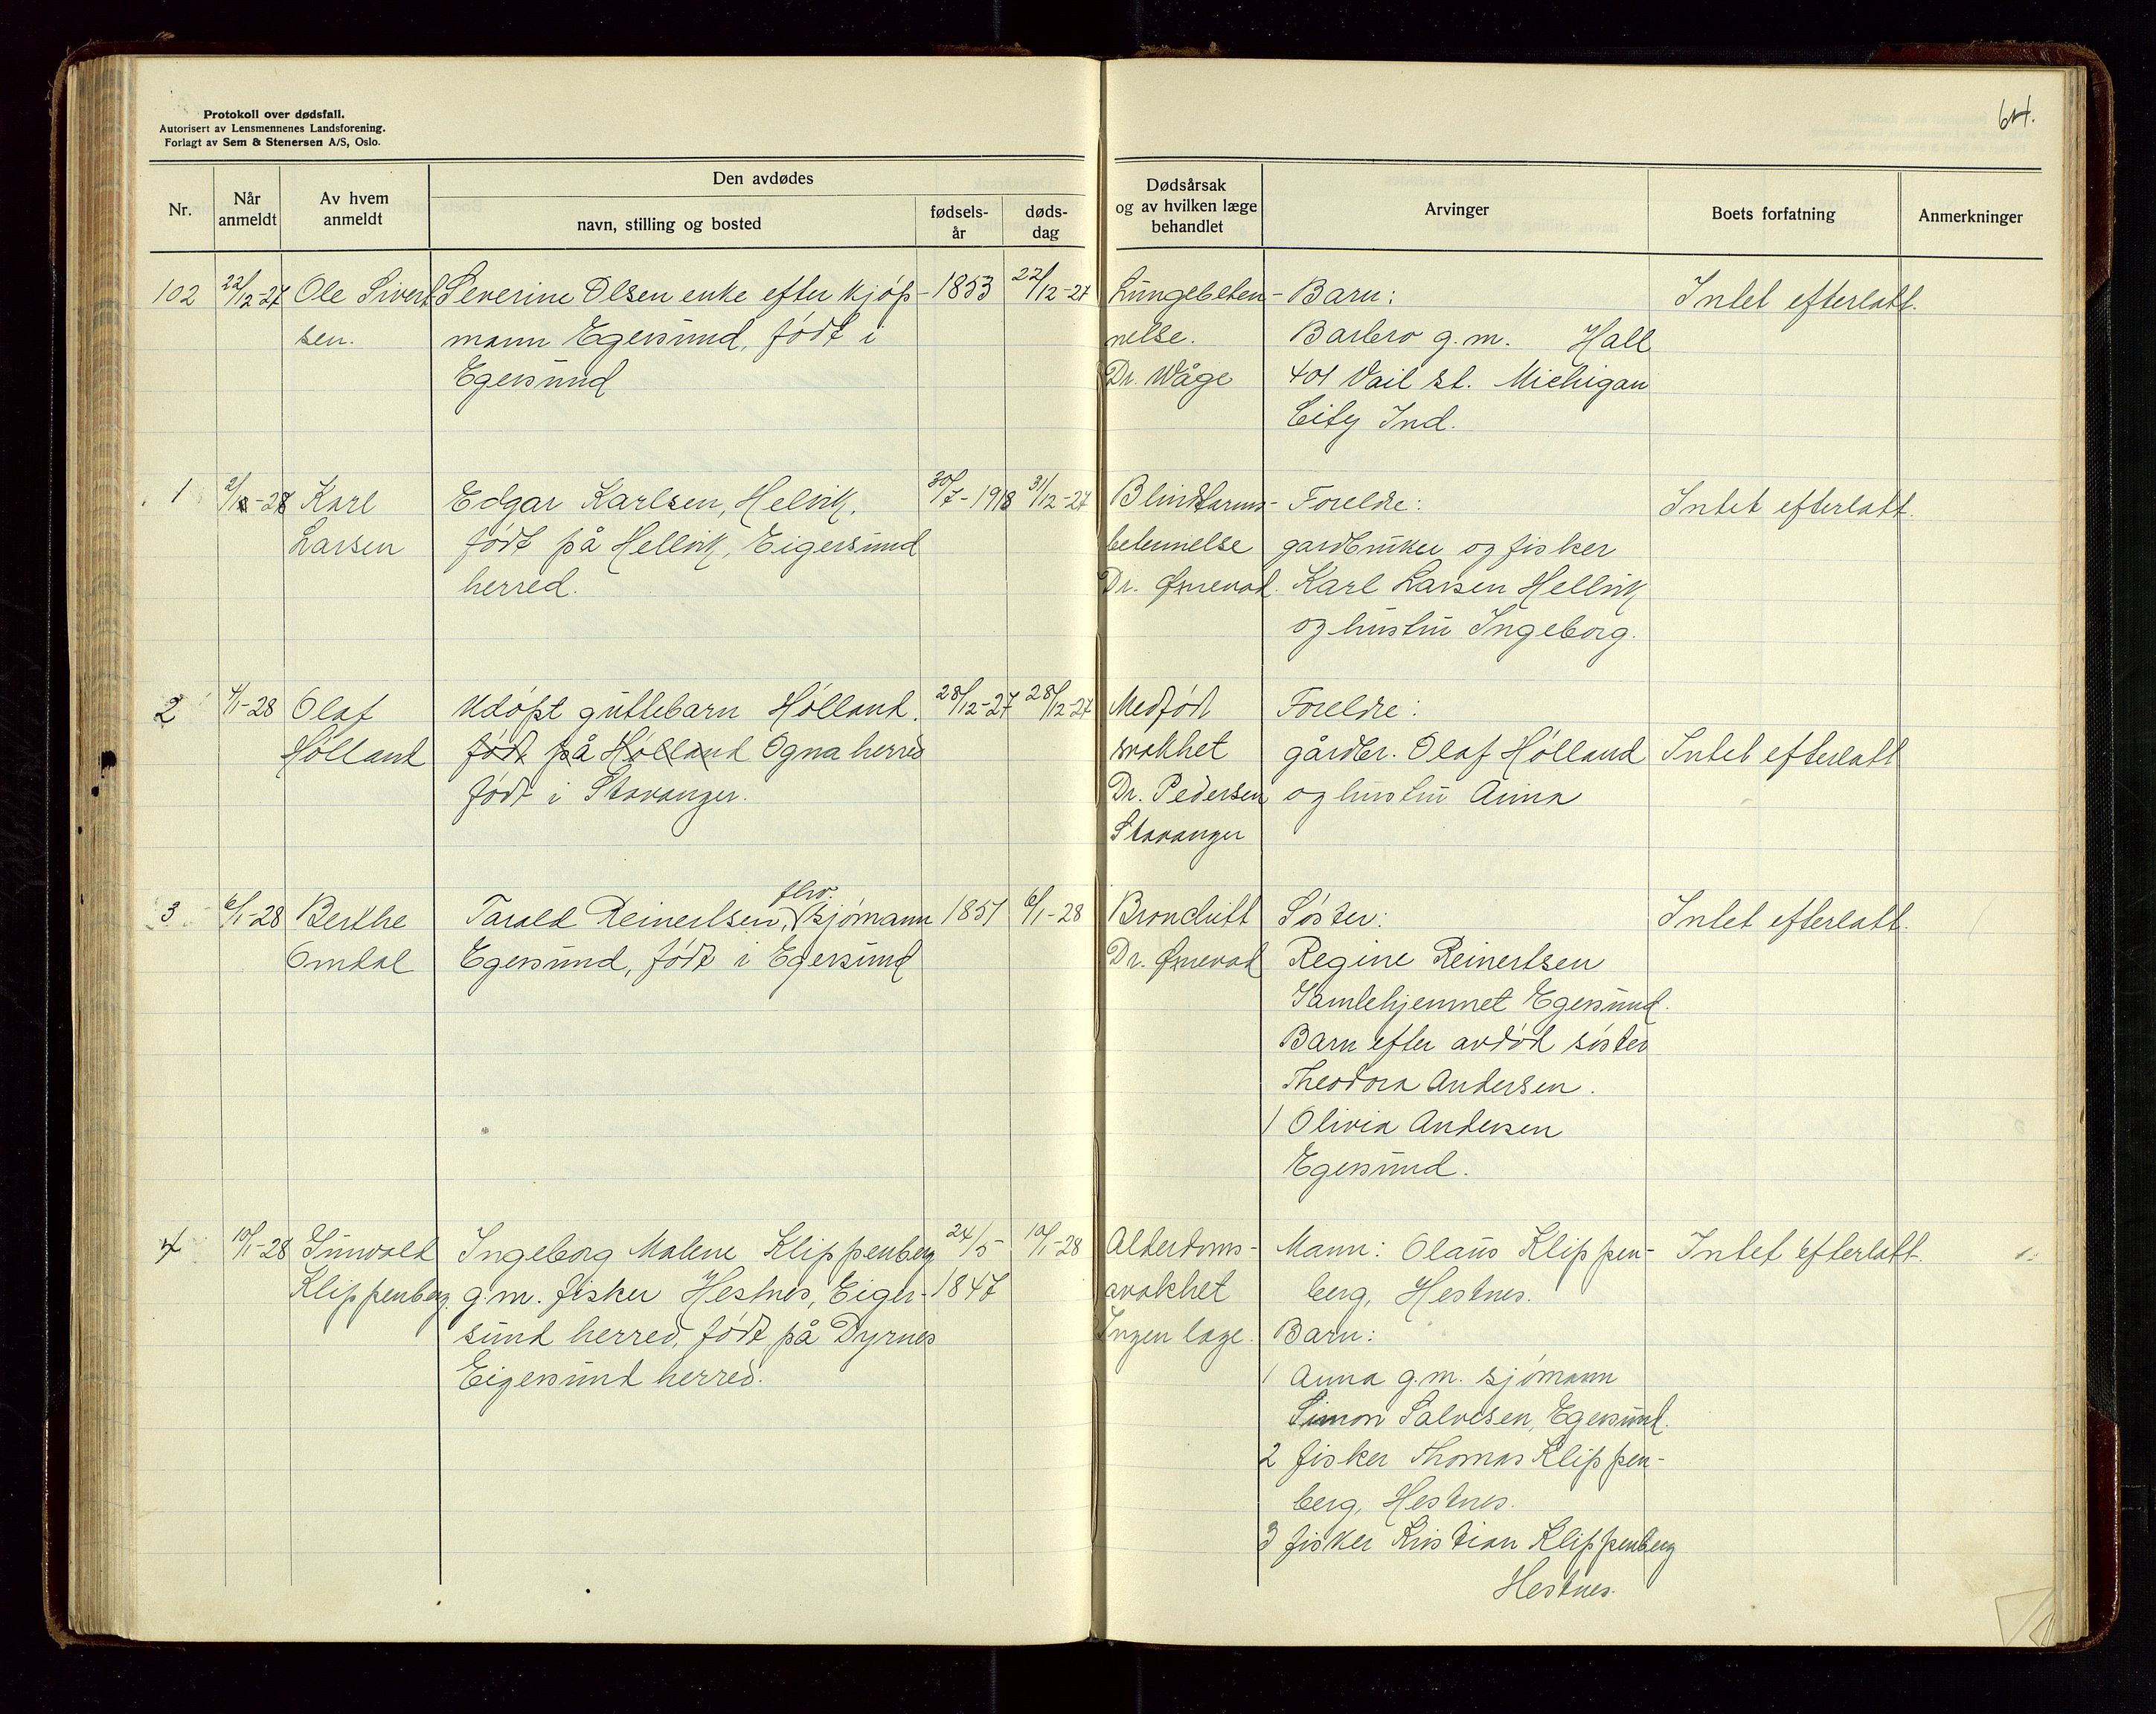 Protokoll over dødsfall.
Autorisert av Lensmennenes Landsforening.
Forlagt av Sem & Stenersen A/S, Oslo.
64.
Nr.
Når anmeldt
Av hvem anmeldt
Den avdødes
navn, stilling og bosted
fødsels-år
døds-dag
Dødsårsak og av hvilken læge behandlet
Arvinger
Boets forfatning
Anmerkninger
102 22/12-27 Ole Sivert- Severine Olsen enke efter kjøp- 1853 22/12-27 Lungebeten- Barn: Intet efterlatt.
sen. mann Egersund, født i nelse. Barbro g.m. Hall
Egersund Dr. Wåge 401 Vail st. Michigan
City Ind.
1 2/1-28 Karl Edgar Karlsen, Helvik. 30/7-1918 31/12-27 Blindtarms- Foreldre: Intet efterlatt.
Larsen født på Hellvik, Eigersund betennelse gardbruker og fisker
herred. Dr. Ørnevad. Karl Larsen Hellvik
og hustru Ingeborg.
2 4/1-28 Olaf Udøpt guttebarn Hølland. 28/12-27 28/12-27 Medfødt Foreldre:
Hølland født på Hølland Ogna herred svakhet gårdbr. Olaf Hølland Intet efterlatt
født i Stavanger. Dr. Pedersen og hustru Anna
Stavanger
3 6/1-28 Berthe Tarald Reinertsen, fhv. sjømann 1851 6/1-28 Bronchitt Søster: Intet efterlatt.
Omdal Egersund, født i Egersund Dr. Ørnevad Regine Reinertsen
Gamlehjemmet Egersund.
Barn efter avdød søster
Theodora Andersen.
1 Olivia Andersen
Egersund.
4 10/1-28 Gunvald Ingeborg Malene Klippenberg 24/5 10/1-28 Alderdoms- Mann: Olaus Klippen- Intet efterlatt.
Klippenberg. g.m. fisker Hestnes, Eiger- 1847 svakhet berg, Hestnes.
sund herred, født på Dyrnes Ingen læge. Barn:
Eigersund herred. 1 Anna g.m. sjømann
Simon Salvesen, Egersund.
2 fisker Thomas Klippen-
berg, Hestnes.
3 fisker Kristian Klippenberg
Hestnes.